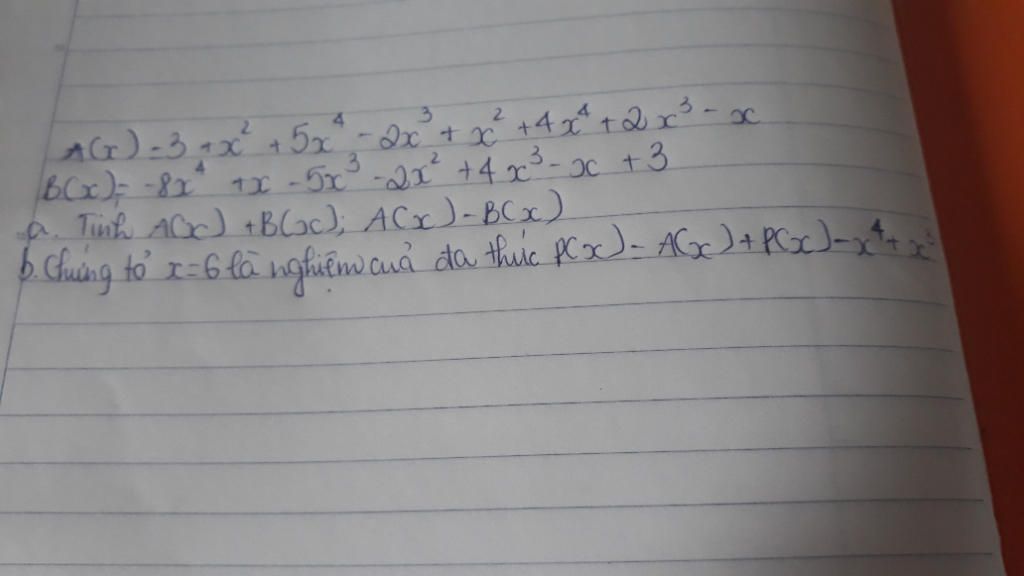 A(x) = 3 + x² + 5x⁴ - 2x³ + x² + 4x⁴ + 2x³ - x
B(x) = -8x⁴ + x - 5x³ - 2x² + 4x³ - x + 3
a. Tính A(x) + B(x); A(x) - B(x)
b. Chứng tỏ x = 6 là nghiệm cuả đa thức P(x) = A(x) + P(x) - x⁴ + x³